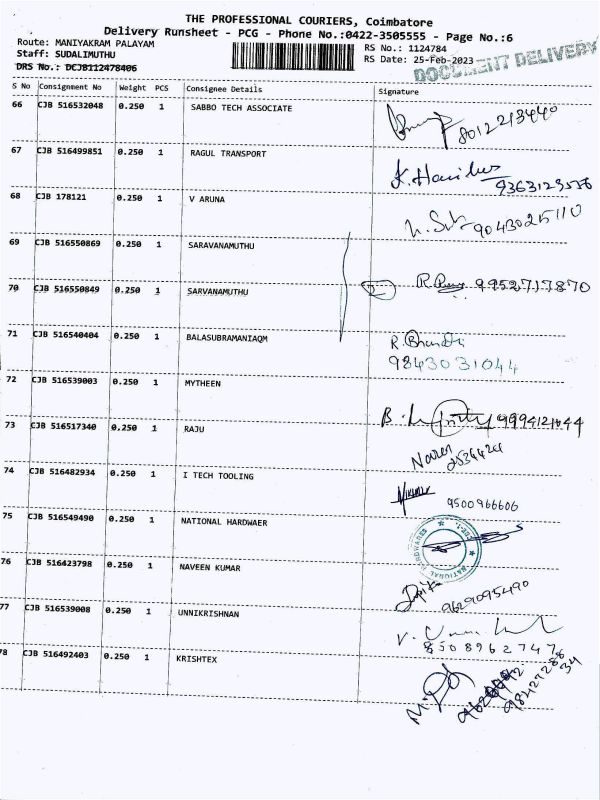 THE PROFESSIONAL COURIERS, Coimbatore
Delivery Runsheet - PCG - Phone No.:0422-3505555 - Page No.:6
Route: MANIYAKRAM PALAYAM
Staff: SUDALIMUTHU
DRS No.: DCJB112478406
RS No.: 1124784
RS Date: 25-Feb-2023
DOCUMENT DELIVERY
S No Consignment No Weight PCS Consignee Details Signature
66 CJB 516532048 0.250 1 SABBO TECH ASSOCIATE 8012213440
67 CJB 516499851 0.250 1 RAGUL TRANSPORT
68 CJB 178121 0.250 1 V ARUNA 9043025110
69 CJB 516550869 0.250 1 SARAVANAMUTHU
70 CJB 516550849 0.250 1 SARVANAMUTHU 9952717870
71 CJB 516540404 0.250 1 BALASUBRAMANIAQM
9843031044
72 CJB 516539003 0.250 1 MYTHEEN
73 CJB 516517340 0.250 1 RAJU
74 CJB 516482934 0.250 1 I TECH TOOLING
9500966606
75 CJB 516549490 0.250 1 NATIONAL HARDWAER
76 CJB 516423798 0.250 1 NAVEEN KUMAR
9629095490
77 CJB 516539008 0.250 1 UNNIKRISHNAN
8508962747
78 CJB 516492403 0.250 1 KRISHTEX